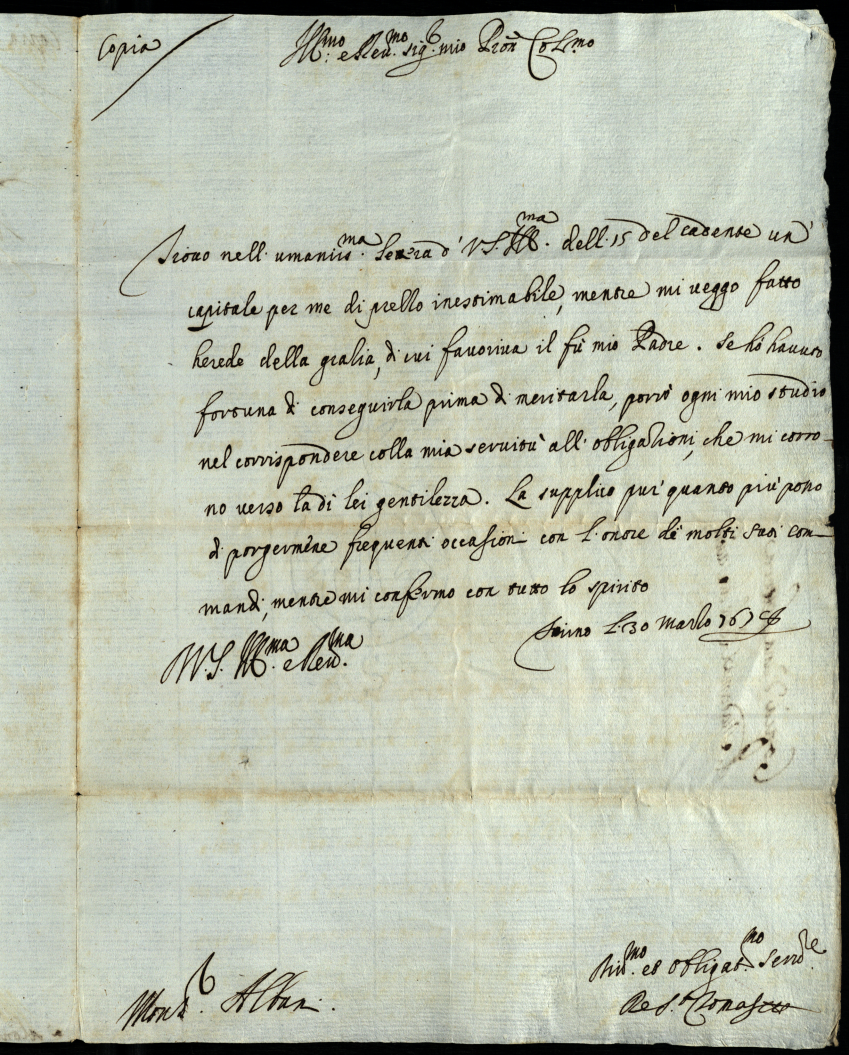 Copia
Ill:mo e Reu.mo Sig.r mio Pron Col.mo
Trouo nell'umaniss.ma lettera d' V.S. Ill.ma dell. 15 del cadente un'
capitale per me di prezzo inestimabile, mentre mi veggo fatto
herede della grazia, di cui favoriva il fù mio Padre. Se hò havuto
fortuna di conseguirla prima di meritarla, porrò ogni mio studio
nel corrispondere colla mia seruitù all'obligazioni, che mi corro-
no verso la di lei gentilezza. La supplico pur' quanto più posso
di porgermene frequenti occasioni con l'onore de' molti suoi com-
mandi, mentre mi confermo con tutto lo spirito
Torino L. 30 Marzo
D.V.S. Ill.ma e Reu.ma
Mons.r Alban.
Diu.mo et obligat.mo Seru.re
De S. Tomaso